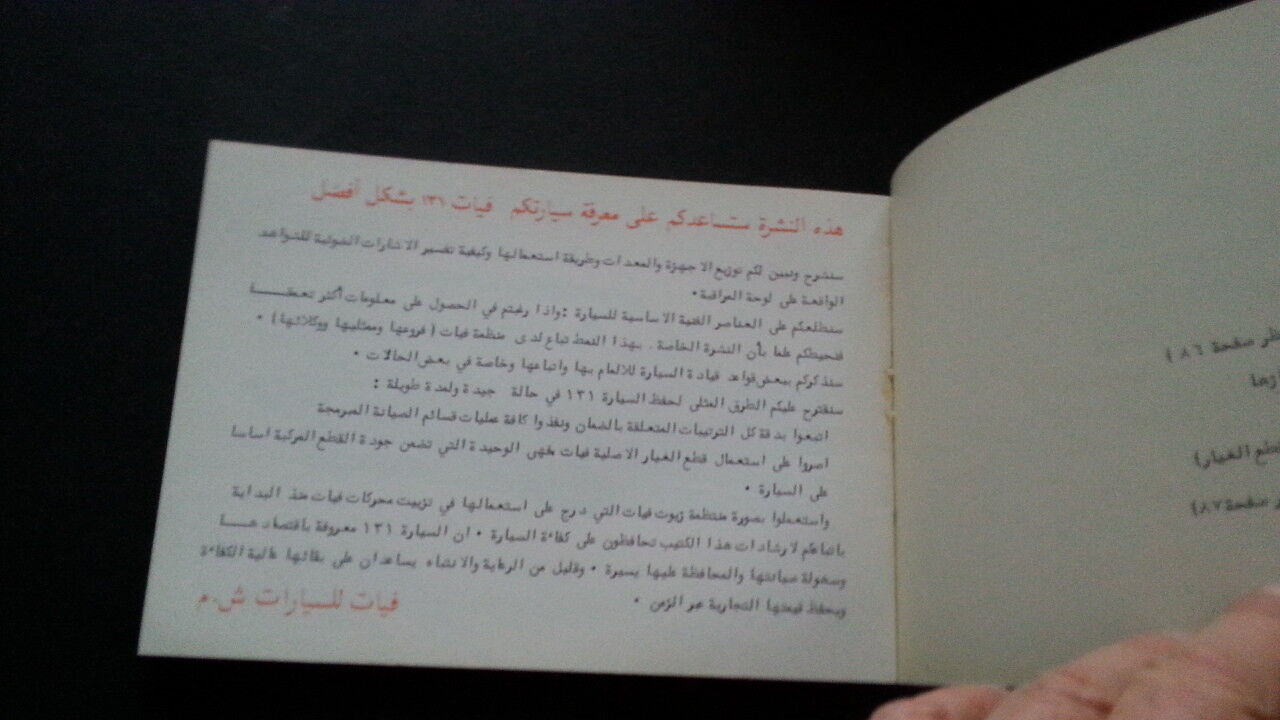 هذه النشرة ستساعدكم على معرفة سيارتكم فيات ١٣١ بشكل أفضل
سنشرح ونبين لكم توزيع الاجهزة والمعدات وطريقة استعمالها وكيفية تفسير الاشارات الضوئية للشواهد
الواقعة على لوحة المراقبة.
سنطلعكم على العناصر الفنية الاساسية للسيارة : واذا رغبتم في الحصول على معلومات أكثر تعمقـــا
فنحيطكم علما بأن النشرة الخاصة . بهذا النمط تباع لدى منظمة فيات ( فروعها وممثليها ووكلائها ) .
سنذكركم ببعض قواعد قيادة السيارة للالمام بها واتباعها وخاصة في بعض الحالات .
سنقترح عليكم الطرق المثلى لحفظ السيارة ١٣١ في حالة جيدة ولمدة طويلة :
اتبعوا بدقة كل الترتيبات المتعلقة بالضمان ونفذوا كافة عمليات قسائم الصيانة المبرمجة
اصروا على استعمال قطع الغيار الاصلية فيات فهى الوحيدة التي تضمن جودة القطع المركبة اساسا
على السيارة .
واستعملوا بصورة منتظمة زيوت فيات التي درج على استعمالها في تزييت محركات فيات منذ البداية
باتباعكم لارشادات هذا الكتيب تحافظون على كفاءة السيارة . ان السيارة ١٣١ معروفة باقتصادهـــا
وسهولة صيانتها والمحافظة عليها يسيرة . وقليل من الرعاية والانتباه يساعدان على بقائها عالية الكفاءة
ويحفظ قيمتها التجارية عبر الزمن .
فيات للسيارات ش.م
صفحة ٨٦ )
قطع الغيار)
صفحة ٨٧)